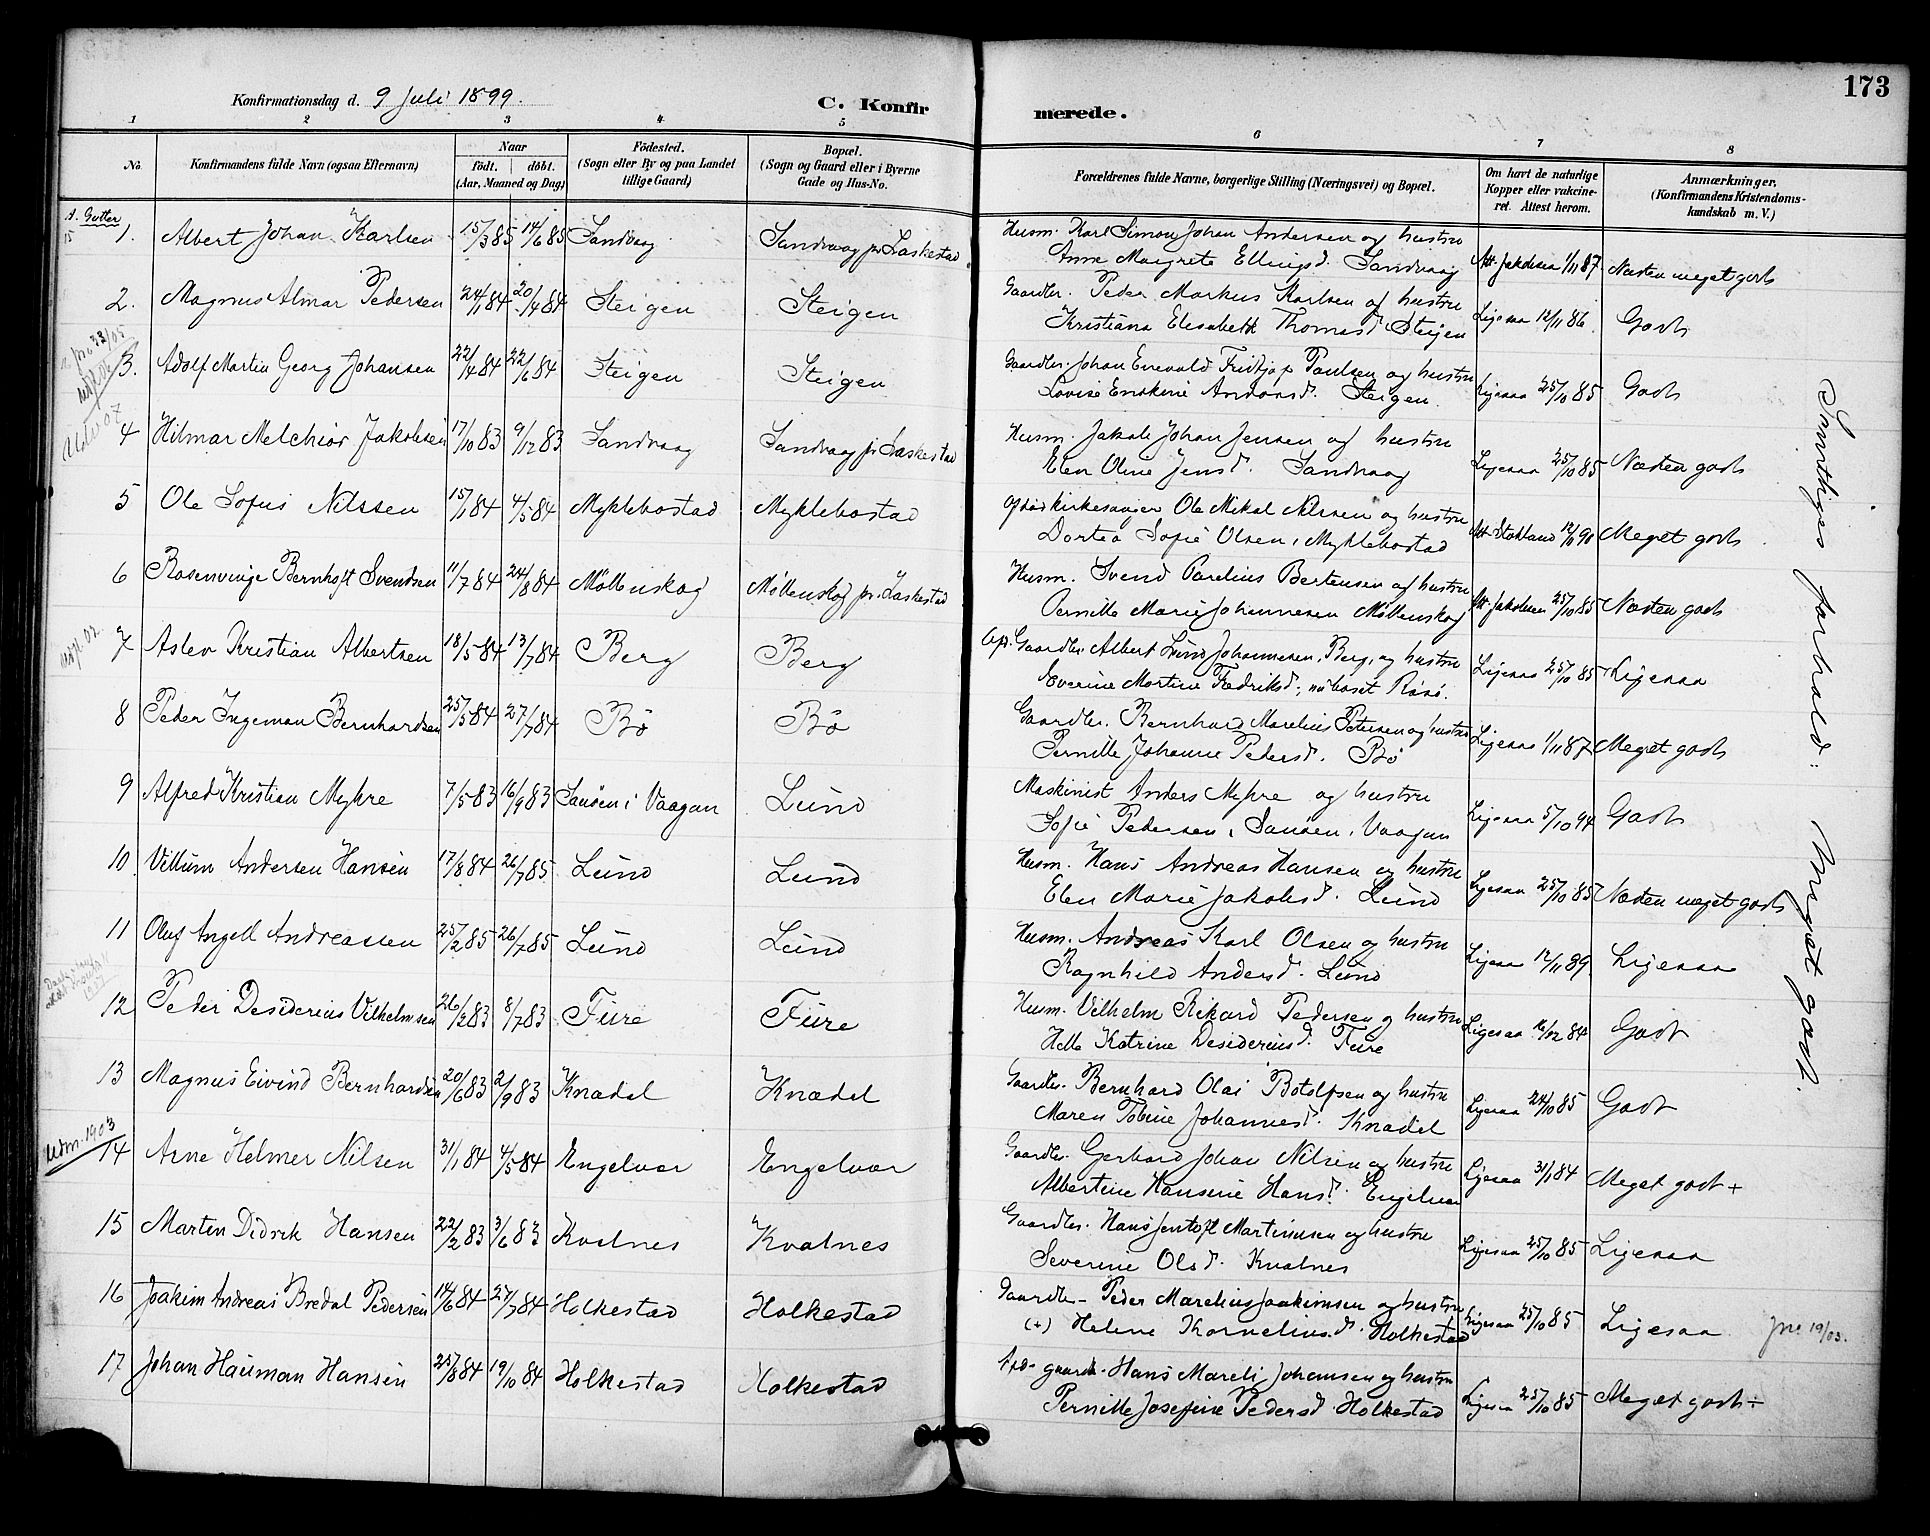 173
Konfirmationsdag d. 9 Juli 1899.
C. Konfirmerede.
1 2 3 4 5 6 7 8
No.
Konfirmandens fulde Navn (ogsaa Efternavn)
Naar
födt. döbt.
(Aar, Maaned og Dag)
Födested.
(Sogn eller By og paa Landet
tillige Gaard)
Bopæl.
(Sogn og Gaard eller i Byerne
Gade og Hus-No.
Forældrenes fulde Navne, borgerlige Stilling (Næringsvei) og Bopæl.
Om havt de naturlige
Kopper eller vakcine-
ret. Attest herom.
Anmærkninger.
(Konfirmandens Kristendoms-
kundskab m. V.)
Gutter
1. Albert Johan Karlsen 15/3 85 14/6 85 Sandvaag Sandvaag pr. Laskestad Husm. Karl Simon Johan Andersen og hustru
Anne Margrete Ellingsd. Sandvaag Att. Jakobsen 1/11 87 Næsten meget godt
2. Magnus Almar Pedersen 24/1 84 20/4 84 Steigen Steigen Gaardbr. Peder Markus Karlsen og hustru
Kristiana Elisabeth Thomasd. Steigen Ligesaa 12/11 86. Godt
3. Adolf Martin Georg Johansen 22/4 84 22/6 84 Steigen Steigen Gaardbr. Johan Enevald Fridtjop Paulsen og hustru
Lovise Enskine Andorsd. Steigen Ligesaa 25/10 85 Godt
4 Hilmar Melchior Jakobsen 17/10 83 9/12 83 Sandvaag Sandvaag pr Laskestad Husm. Jakob Johan Jensen og hustru
Elen Oline Jensd. Sandvaag Ligesaa 25/10 85 Næsten godt
5 Ole Sofus Nilssen 15/1 84 4/5 84 Myklebostad Myklebostad Kirkesanger Ole Mikal Nilssen og hustru
Dortea Sofie Olsen, Myklebostad Att. Stokland 12/10 90 Meget godt
6 Rosenvinge Bernhoft Svendsen 11/7 84 24/8 84 Möllenskog Möllenskog pr. Laskestad Husm. Svend Parelius Bertensen og hustru
Pernille Marie Johannesen Möllenskog Att. Jakobsen 25/10 85 Næsten godt
7 Aslev Kristian Albertsen 18/5 84 13/7 84 Berg Berg Gaardbr. Albert Lund Johannesen, Berg, og hustru
Everine Martine Fredriksd., nu boset Rösö. Ligesaa 25/10 85 Ligesaa
8 Peder Ingeman Bernhardsen 25/5 84 27/7 84 Bö Bö Gaardbr. Bernhard Marelius Petersen og hustru
Pernille Johanne Pedersd. Bö Ligesaa 1/11 87 Meget godt
9 Alfred Kristian Myhre 7/5 83 16/9 83 Sanden i Vaagan Lund Maskinist Anders Myhre og hustru
Sofie Pedersen, Sanden, Vaagan Ligesaa 5/10 94 Godt
10 Villum Andersen Hansen 17/6 84 26/7 85 Lund Lund Husm. Hans Andreas Hansen og hustru
Elen Marie Jakobsd. Lund Ligesaa 25/10 85 Næsten meget godt
11 Oluf Angell Andreassen 25/2 85 26/7 85 Lund Lund Husm. Andreas Karl Olsen og hustru
Ragnhild Andersd. Lund Ligesaa 12/11 89 Ligesaa
12 Peder Desiderius Vilhelmsen 26/2 83 8/7 83 Fure Fure Husm. Vilhelm Rikard Pedersen og hustru
Helle Katrine Desideriusd. Fure Ligesaa 16/12 84 Godt
13 Magnus Eivind Bernhardsen 20/6 83 2/9 83 Knædal Knædal Gaardbr. Bernhard Olai Botolfsen og hustru
Maren Tobine Johannesd. Knædel Ligesaa 24/10 85 Godt
Udm. 1903
14 Arne Helmer Nilsen 31/1 84 4/5 84 Engelvær Engelvær Gaardbr. Gerhard Johan Nilsen og hustru
Albertine Hansine Hansd. Engelvær Ligesaa 31/1 84 Meget godt +
15 Martin Didrik Hansen 22/2 83 3/6 83 Kvalnes Kvalnes Gaardbr. Hans Jentoft Martinusen og hustru
Severine Olsd. Kvalnes Ligesaa 25/10 85 Ligesaa
16 Joakim Andreas Bredal Pedersen 14/6 84 27/7 84 Holkestad Holkestad Gaardbr. Peder Marelius Joakimsen og hustru
(+) Helene Korneliusd. Holkestad Ligesaa 25/10 85 Ligesaa 19/03.
17 Johan Hauman Hansen 25/8 84 19/10 84 Holkestad Holkestad gaardb. Hans Mareli Johansen og hustru
Pernille Josefine Pedersd. Holkestad Ligesaa 25/10 85 Meget godt +
Samtliges forhold: Meget godt.